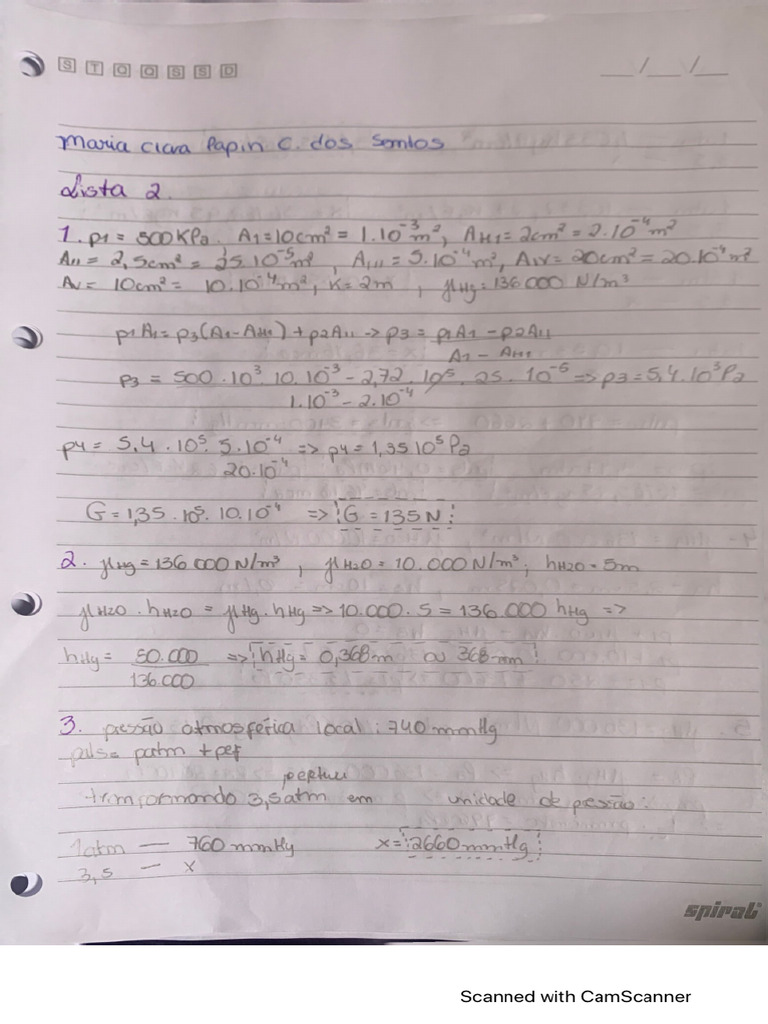 S T Q Q S S D __/__/__
Maria Clara Papin C. dos Santos
Lista 2.
1. p1 = 500KPa, A1=10cm² = 1.10⁻³m², AH1= 2cm² = 2.10⁻⁴m²
AII = 2,5cm² = 25.10⁻⁵m², AIII = 5.10⁻⁴m², AIV= 20cm² = 20.10⁻⁴m²
AV = 10cm² = 10.10⁻⁴m², K = 2m, γHg = 136 000 N/m³
p1A1 = p3(A1-AH1) + p2AII -> p3 = p1A1 - p2AII
A1 - AH1
p3 = 500.10³.10.10⁻³ - 2,72.10⁵.25.10⁻⁵ => p3 = 5,4.10⁵Pa
1.10⁻³ - 2.10⁻⁴
p4 = 5,4.10⁵.5.10⁻⁴ => p4 = 1,35 10⁵Pa
20.10⁻⁴
G = 1,35.10⁵.10.10⁻⁴ => G = 135N
2. γHg = 136 000 N/m³, γH2O = 10.000 N/m³; hH2O = 5m
γH2O . hH2O = γHg . hHg => 10.000 . 5 = 136.000 hHg =>
hHg = 50.000 => hHg = 0,368m ou 368mm
136.000
3. pressão atmosférica local: 740 mmHg
= patm + pef
transformando 3,5 atm em unidade de pressão:
1atm — 760 mmHg x = 2660 mmHg
3,5 — x
spiral
Scanned with CamScanner